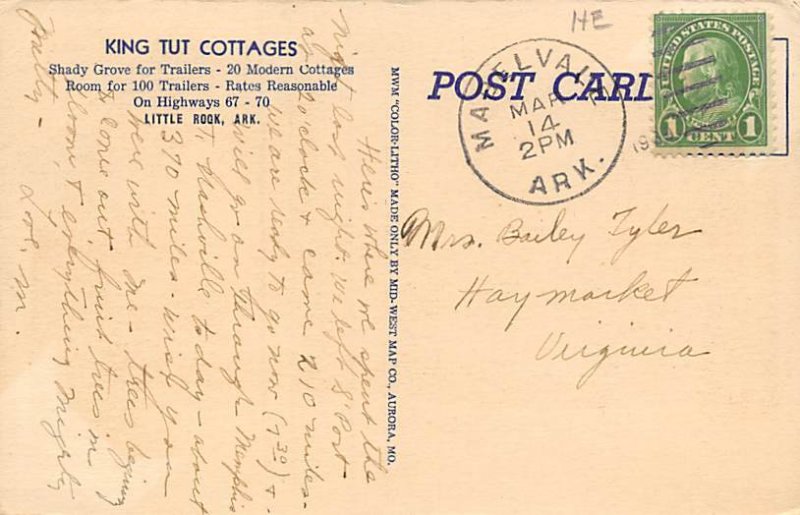 HE
KING TUT COTTAGES
Shady Grove for Trailers - 20 Modern Cottages
Room for 100 Trailers - Rates Reasonable
On Highways 67 - 70
LITTLE ROCK, ARK.
Here's where we spent the
night last night. We left S. Port
at o'clock & came 210 miles -
we are ready to go now (7 30) &
will go on through Memphis
to Nashville today - about
370 miles. Wish you
were with me - trees begining
to come out, fruit trees in
bloom & everything mighty
Pretty -
Love. M.
MWM "COLOR-LITHO" MADE ONLY BY MID-WEST MAP CO., AURORA, MO.
POST CARD
MABELVALE
MAR
14
2PM
ARK.
193
UNITED STATES POSTAGE
1 CENT 1
Mrs. Bailey Tyler
Haymarket
Virginia